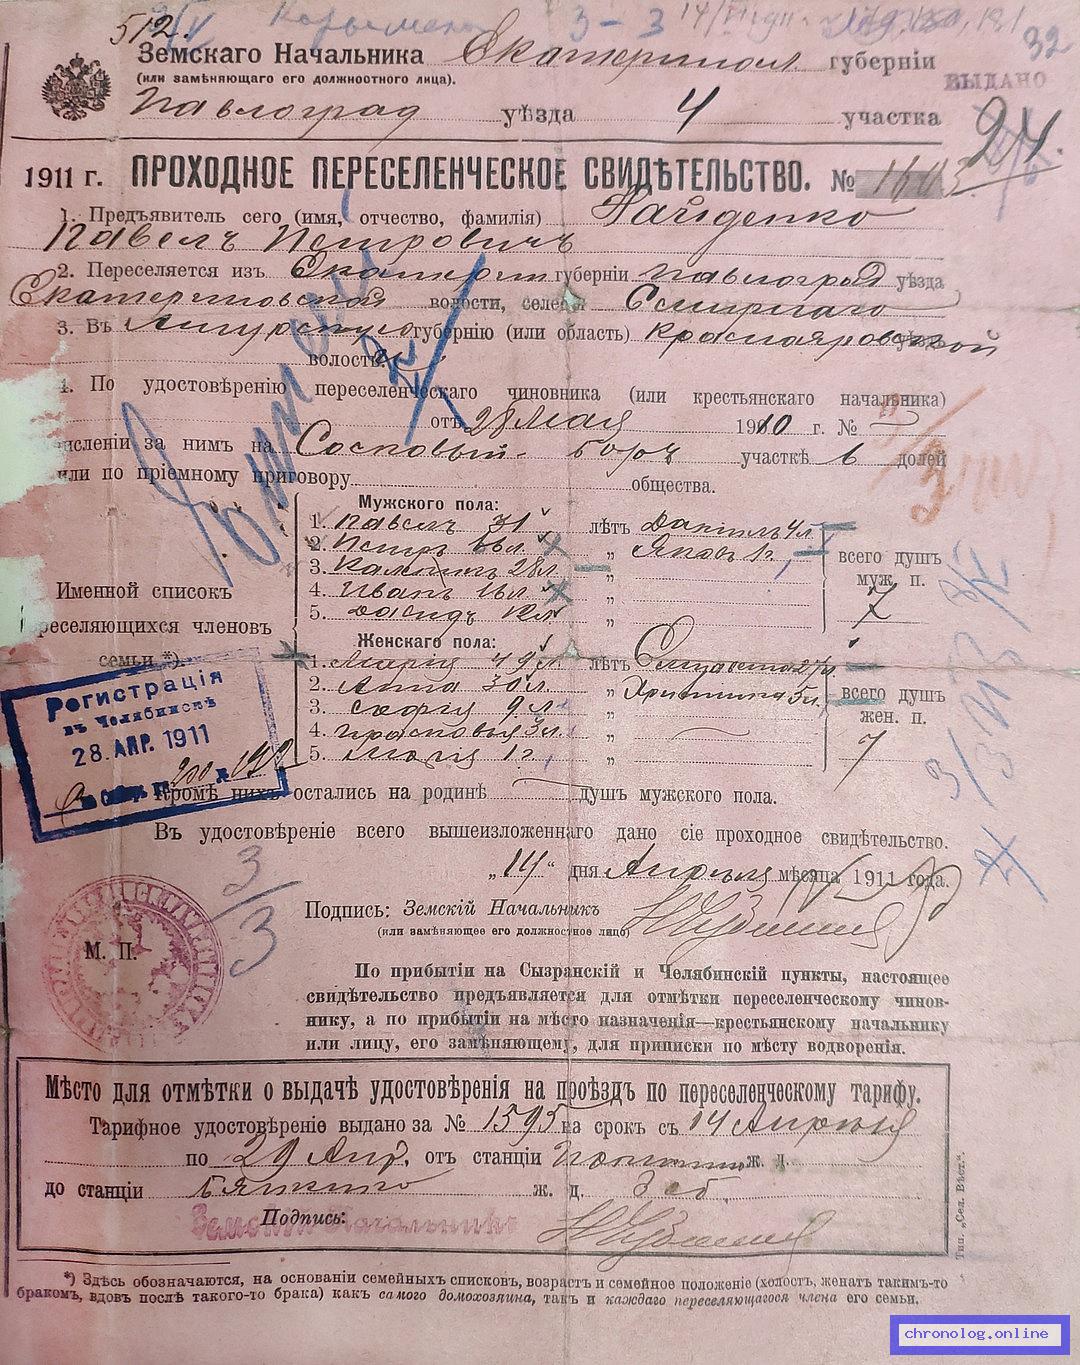 512.
3 - 3
32
Земскаго Начальника Екатериносл губерніи
(или замѣняющаго его должностного лица).
ВЫДАНО
Павлоград уѣзда 4 участка
24.
1911 г. ПРОХОДНОЕ ПЕРЕСЕЛЕНЧЕСКОЕ СВИДѢТЕЛЬСТВО. № 1603
1. Предъявитель сего (имя, отчество, фамилія) Гайденко
Павелъ Петровичъ
2. Переселяется изъ Екатерин. губерніи Павлоград уѣзда
Екатериновской волости, селен
3. Въ губернію (или область) Краснояровской уѣзда
волость.
4. По удостовѣренію переселенческаго чиновника (или крестьянскаго начальника)
отъ 28 Мая 1910 г. №
числении за нимъ на Сосновый-боръ участкѣ 6 долей
или по пріемному приговору общества.
Мужского пола:
1. Павелъ 31 лѣтъ Даніилъ 4 л
2. Петръ 66 л. „ Яковъ 1 г.
3. 28 л. „
4. Иванъ 16 л „
5. Давидъ 12 л „
всего душъ
муж. п.
7
Именной списокъ
реселяющихся членовъ
семьи *).
Женскаго пола:
1. Марія 49 л. лѣтъ 27 л
2. Анна 30 л. „ Христина 5 л.
3. Софія 9 л. „
4. Прасковья 3 л. „
5. 1 г. „
всего душъ
жен. п.
7
Регистрація
въ Челябинскѣ
28. АПР. 1911
Кромѣ нихъ остались на родинѣ душъ мужского пола.
Въ удостовѣреніе всего вышеизложеннаго дано сіе проходное свидѣтельство.
„14" дня Апрѣля мѣсяца 1911 года.
3/3
Подпись: Земскій Начальникъ
(или замѣняющее его должностное лицо)
М. П.
По прибытіи на Сызранскій и Челябинскій пункты, настоящее
свидѣтельство предъявляется для отмѣтки переселенческому чинов-
нику, а по прибытіи на мѣсто назначенія—крестьянскому начальнику
или лицу, его замѣняющему, для приписки по мѣсту водворенія.
Мѣсто для отмѣтки о выдачѣ удостовѣренія на проѣздъ по переселенческому тарифу.
Тарифное удостовѣреніе выдано за № 1595 на срокъ съ 14 Апрѣля
по 29 Апр. отъ станціи ж. д.
до станціи ж. д.
Земскій Начальникъ
Подпись:
Тип. „Сел. Вѣст.“.
*) Здѣсь обозначаются, на основаніи семейныхъ списковъ, возрастъ и семейное положеніе (холостъ, женатъ такимъ-то
бракомъ, вдовъ послѣ такого-то брака) какъ самого домохозяина, такъ и каждаго переселяющагося члена его семьи.
chronolog.online